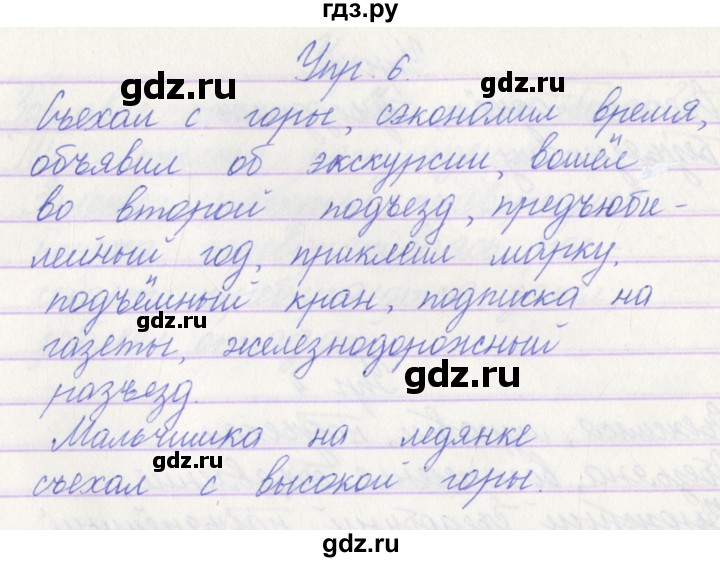 гдз.ру
Упр. 6.
gdz.ru
gdz.ru
Съехал с горы, сэкономил время,
объявил об экскурсии, вошёл
во второй подъезд, предъюби-
лейный год, приклеил марку,
подъёмный кран, подписка на
gdz.ru
газеты, железнодорожный
gdz.ru
разъезд.
Мальчишка на ледянке
gdz.ru
съехал с высокой горы.
gdz.ru